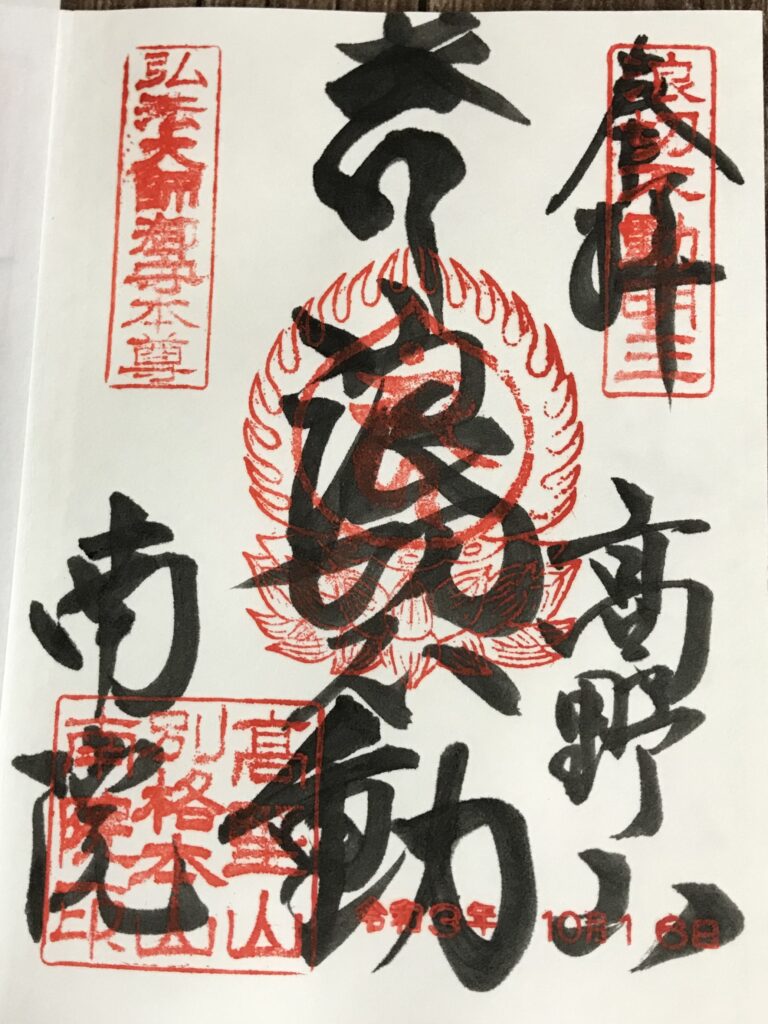 奉拝
浪切不動明王
高野山
浪切不動
弘法大師御 本尊
南院
高野山
別格本山
南院印
令和3年 10月16日